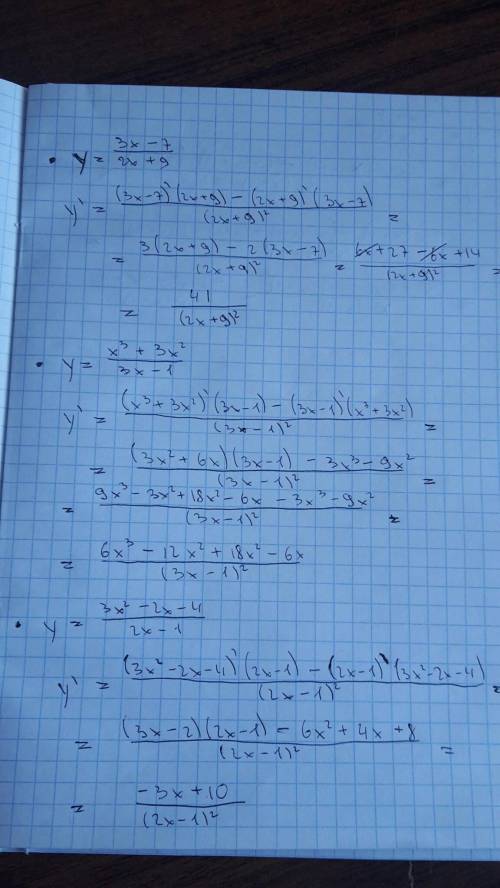 • y = (3x − 7)/(2x + 9)
y' = ((3x−7)'(2x+9) − (2x+9)'(3x−7))/(2x+9)² =
= (3(2x+9) − 2(3x−7))/(2x+9)² = (6x + 27 − 6x + 14)/(2x+9)² =
= 41/(2x+9)²
• y = (x³ + 3x²)/(3x − 1)
y' = ((x³+3x²)'(3x−1) − (3x−1)'(x³+3x²))/(3x−1)² =
= ((3x² + 6x)(3x−1) − 3x³ − 9x²)/(3x−1)² =
= (9x³ − 3x² + 18x² − 6x − 3x³ − 9x²)/(3x−1)² =
= (6x³ − 12x² + 18x² − 6x)/(3x − 1)²
• y = (3x² − 2x − 4)/(2x − 1)
y' = ((3x² − 2x − 4)'(2x−1) − (2x−1)'(3x² − 2x − 4))/(2x−1)² =
= ((3x−2)(2x−1) − 6x² + 4x + 8)/(2x−1)² =
= (−3x + 10)/(2x−1)²